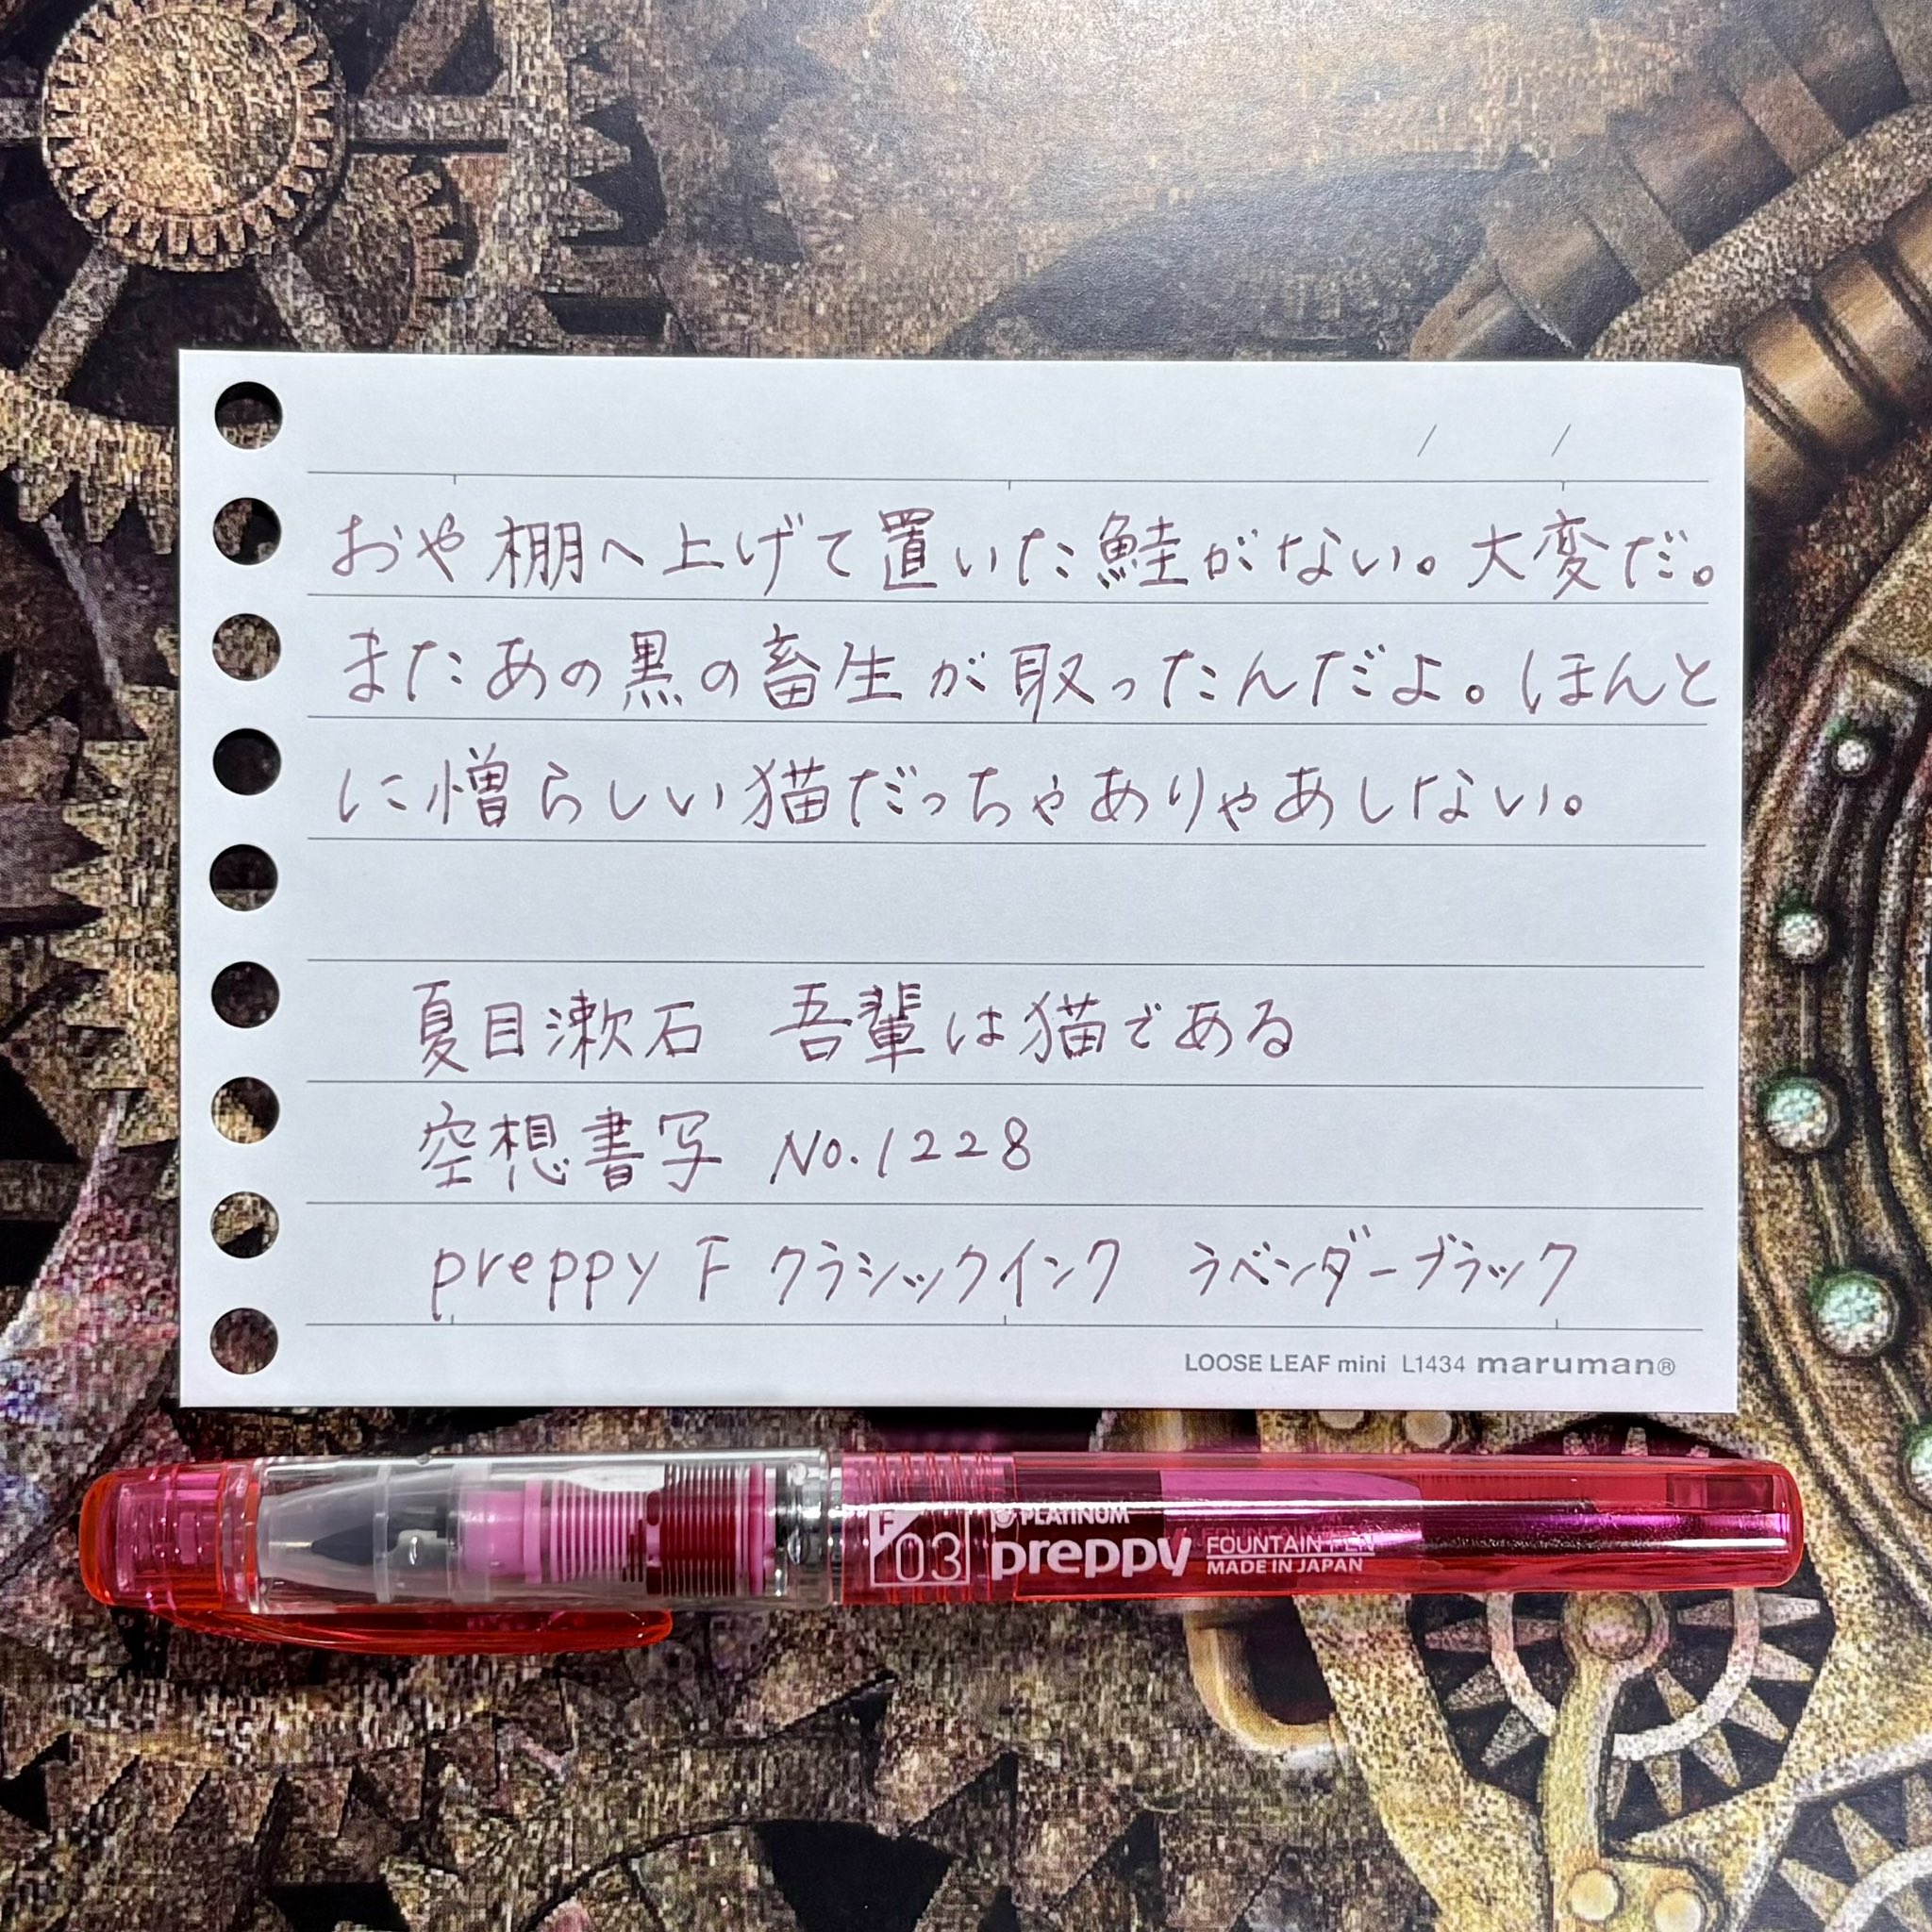 / /
おや棚へ上げて置いた鮭がない。大変だ。
またあの黒の畜生が取ったんだよ。ほんと
に憎らしい猫だっちゃありゃあしない。
夏目漱石 吾輩は猫である
空想書写 No.1228
preppy F クラシックインク ラベンダーブラック
LOOSE LEAF mini L1434 maruman®
F 03 PLATINUM preppy FOUNTAIN PEN
MADE IN JAPAN